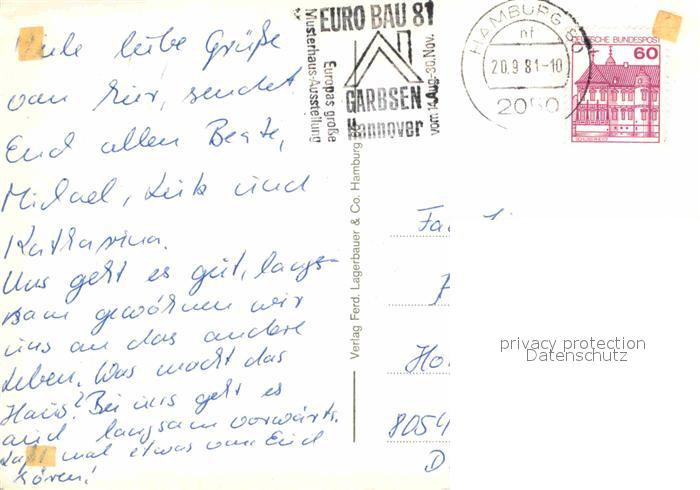 Viele liebe Grüße
von hier, sendet
Euch allen Beate,
Michael, und
Katharina.
Uns geht es gut, lang-
sam gewöhnen wir
uns an das andere
Leben. Was macht das
Haus? Bei uns geht es
auch langsam vorwärts.
Laßt mal etwas von Euch
hören!
EURO BAU 81
Musterhaus-Ausstellung
Europas große
GARBSEN
Hannover
HAMBURG 80
nf
20.9.81-10
2050
DEUTSCHE BUNDESPOST
60
Verlag Ferd. Lagerbauer & Co. Hamburg
privacy protection
Datenschutz
8054
D